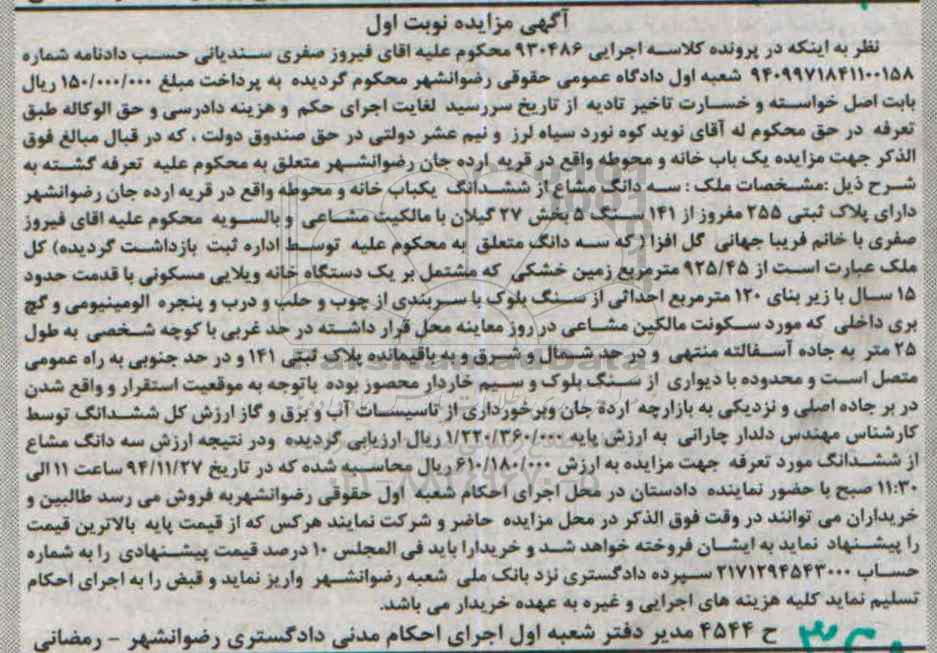 آگهی مزایده نوبت اول
نظر به اینکه در پرونده کلاسه اجرایی ۹۳۰۴۸۶ محکوم علیه اقای فیروز صفری سندیانی حسب دادنامه شماره
۹۴۰۹۹۷۱۸۴۱۱۰۰۱۵۸ شعبه اول دادگاه عمومی حقوقی رضوانشهر محکوم گردیده به پرداخت مبلغ ۱۵۰/۰۰۰/۰۰۰ ریال
بابت اصل خواسته و خسارت تاخیر تادیه از تاریخ سررسید لغایت اجرای حکم و هزینه دادرسی و حق الوکاله طبق
تعرفه در حق محکوم له آقای نوید کوه نورد سیاه لرز و نیم عشر دولتی در حق صندوق دولت ، که در قبال مبالغ فوق
الذکر جهت مزایده یک باب خانه و محوطه واقع در قریه ارده جان رضوانشهر متعلق به محکوم علیه تعرفه گشته به
شرح ذیل :مشخصات ملک : سه دانگ مشاع از ششدانگ یکباب خانه و محوطه واقع در قریه ارده جان رضوانشهر
دارای پلاک ثبتی ۲۵۵ مفروز از ۱۴۱ سنگ ۵ بخش ۲۷ گیلان با مالکیت مشاعی و بالسویه محکوم علیه اقای فیروز
صفری با خانم فریبا جهانی گل افزا ( که سه دانگ متعلق به محکوم علیه توسط اداره ثبت بازداشت گردیده) کل
ملک عبارت است از ۹۲۵/۴۵ مترمربع زمین خشکی که مشتمل بر یک دستگاه خانه ویلایی مسکونی با قدمت حدود
۱۵ سال با زیر بنای ۱۲۰ مترمربع احداثی از سنگ بلوک با سربندی از چوب و حلب و درب و پنجره الومینیومی و گچ
بری داخلی که مورد سکونت مالکین مشاعی در روز معاینه محل قرار داشته در حد غربی با کوچه شخصی به طول
۲۵ متر به جاده آسفالته منتهی و در حد شمال و شرق و به باقیمانده پلاک ثبتی ۱۴۱ و در حد جنوبی به راه عمومی
متصل است و محدوده با دیواری از سنگ بلوک و سیم خاردار محصور بوده باتوجه به موقعیت استقرار و واقع شدن
در بر جاده اصلی و نزدیکی به بازارچه ارده جان وبرخورداری از تاسیسات آب و برق و گاز ارزش کل ششدانگ توسط
کارشناس مهندس دلدار چارانی به ارزش پایه ۱/۲۲۰/۳۶۰/۰۰۰ ریال ارزیابی گردیده ودر نتیجه ارزش سه دانگ مشاع
از ششدانگ مورد تعرفه جهت مزایده به ارزش ۶۱۰/۱۸۰/۰۰۰ ریال محاسبه شده که در تاریخ ۹۴/۱۱/۲۷ ساعت ۱۱ الی
۱۱:۳۰ صبح با حضور نماینده دادستان در محل اجرای احکام شعبه اول حقوقی رضوانشهربه فروش می رسد طالبین و
خریداران می توانند در وقت فوق الذکر در محل مزایده حاضر و شرکت نمایند هرکس که از قیمت پایه بالاترین قیمت
را پیشنهاد نماید به ایشان فروخته خواهد شد و خریدارا باید فی المجلس ۱۰ درصد قیمت پیشنهادی را به شماره
حساب ۲۱۷۱۲۹۴۵۴۳۰۰۰ سپرده دادگستری نزد بانک ملی شعبه رضوانشهر واریز نماید و قبض را به اجرای احکام
تسلیم نماید کلیه هزینه های اجرایی و غیره به عهده خریدار می باشد.
ح ۴۵۴۴ مدیر دفتر شعبه اول اجرای احکام مدنی دادگستری رضوانشهر – رمضانی
ParsNamadData